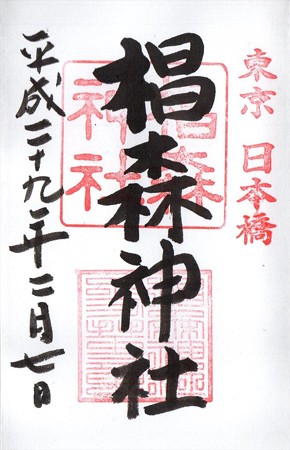 東京 日本橋
椙森神社
椙森
神社
平成二十九年二月七日